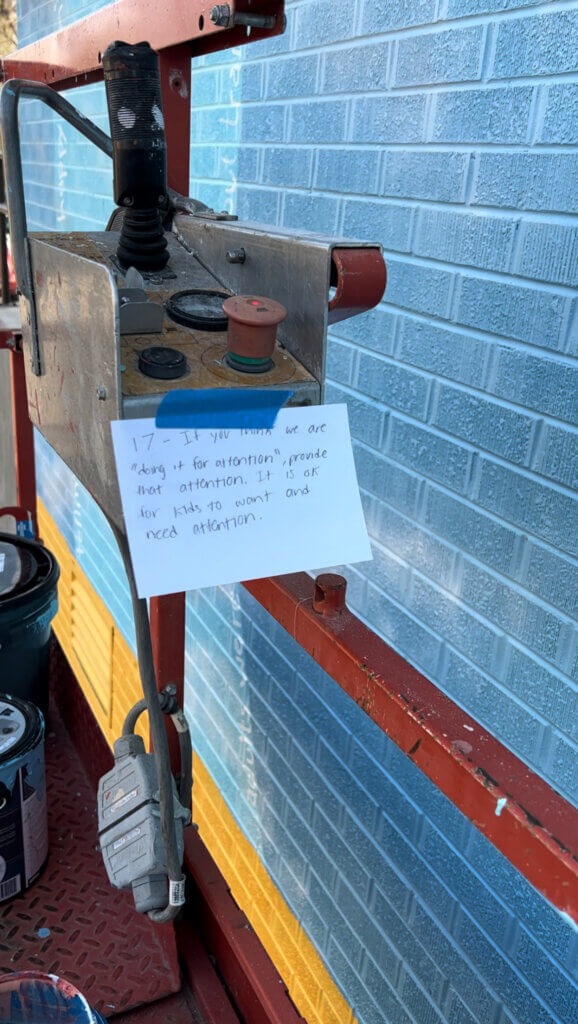 17 - If you think we are
"doing it for attention", provide
that attention. It is ok
for kids to want and
need attention.